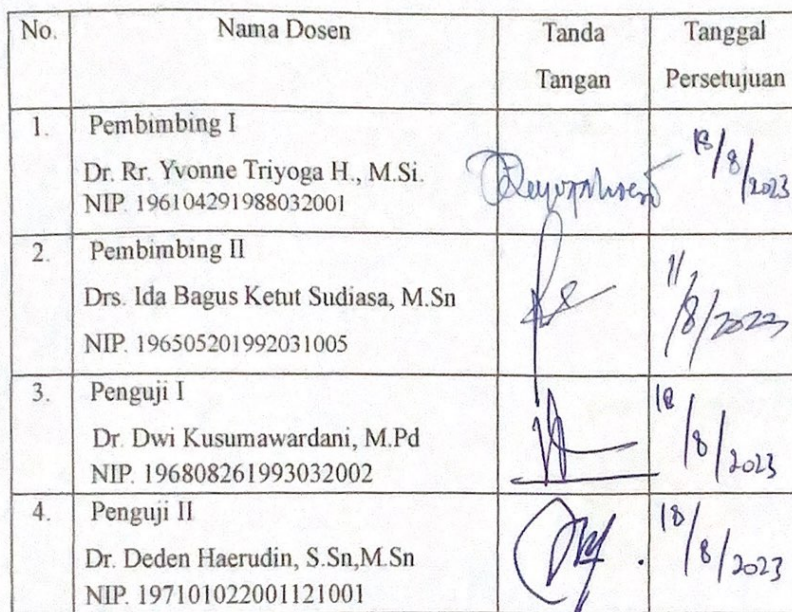 No. Nama Dosen Tanda Tangan Tanggal Persetujuan
1. Pembimbing I
Dr. Rr. Yvonne Triyoga H., M.Si.
NIP. 196104291988032001
18/8/2023
2. Pembimbing II
Drs. Ida Bagus Ketut Sudiasa, M.Sn
NIP. 196505201992031005
11/8/2023
3. Penguji I
Dr. Dwi Kusumawardani, M.Pd
NIP. 196808261993032002
18/8/2023
4. Penguji II
Dr. Deden Haerudin, S.Sn,M.Sn
NIP. 197101022001121001
18/8/2023